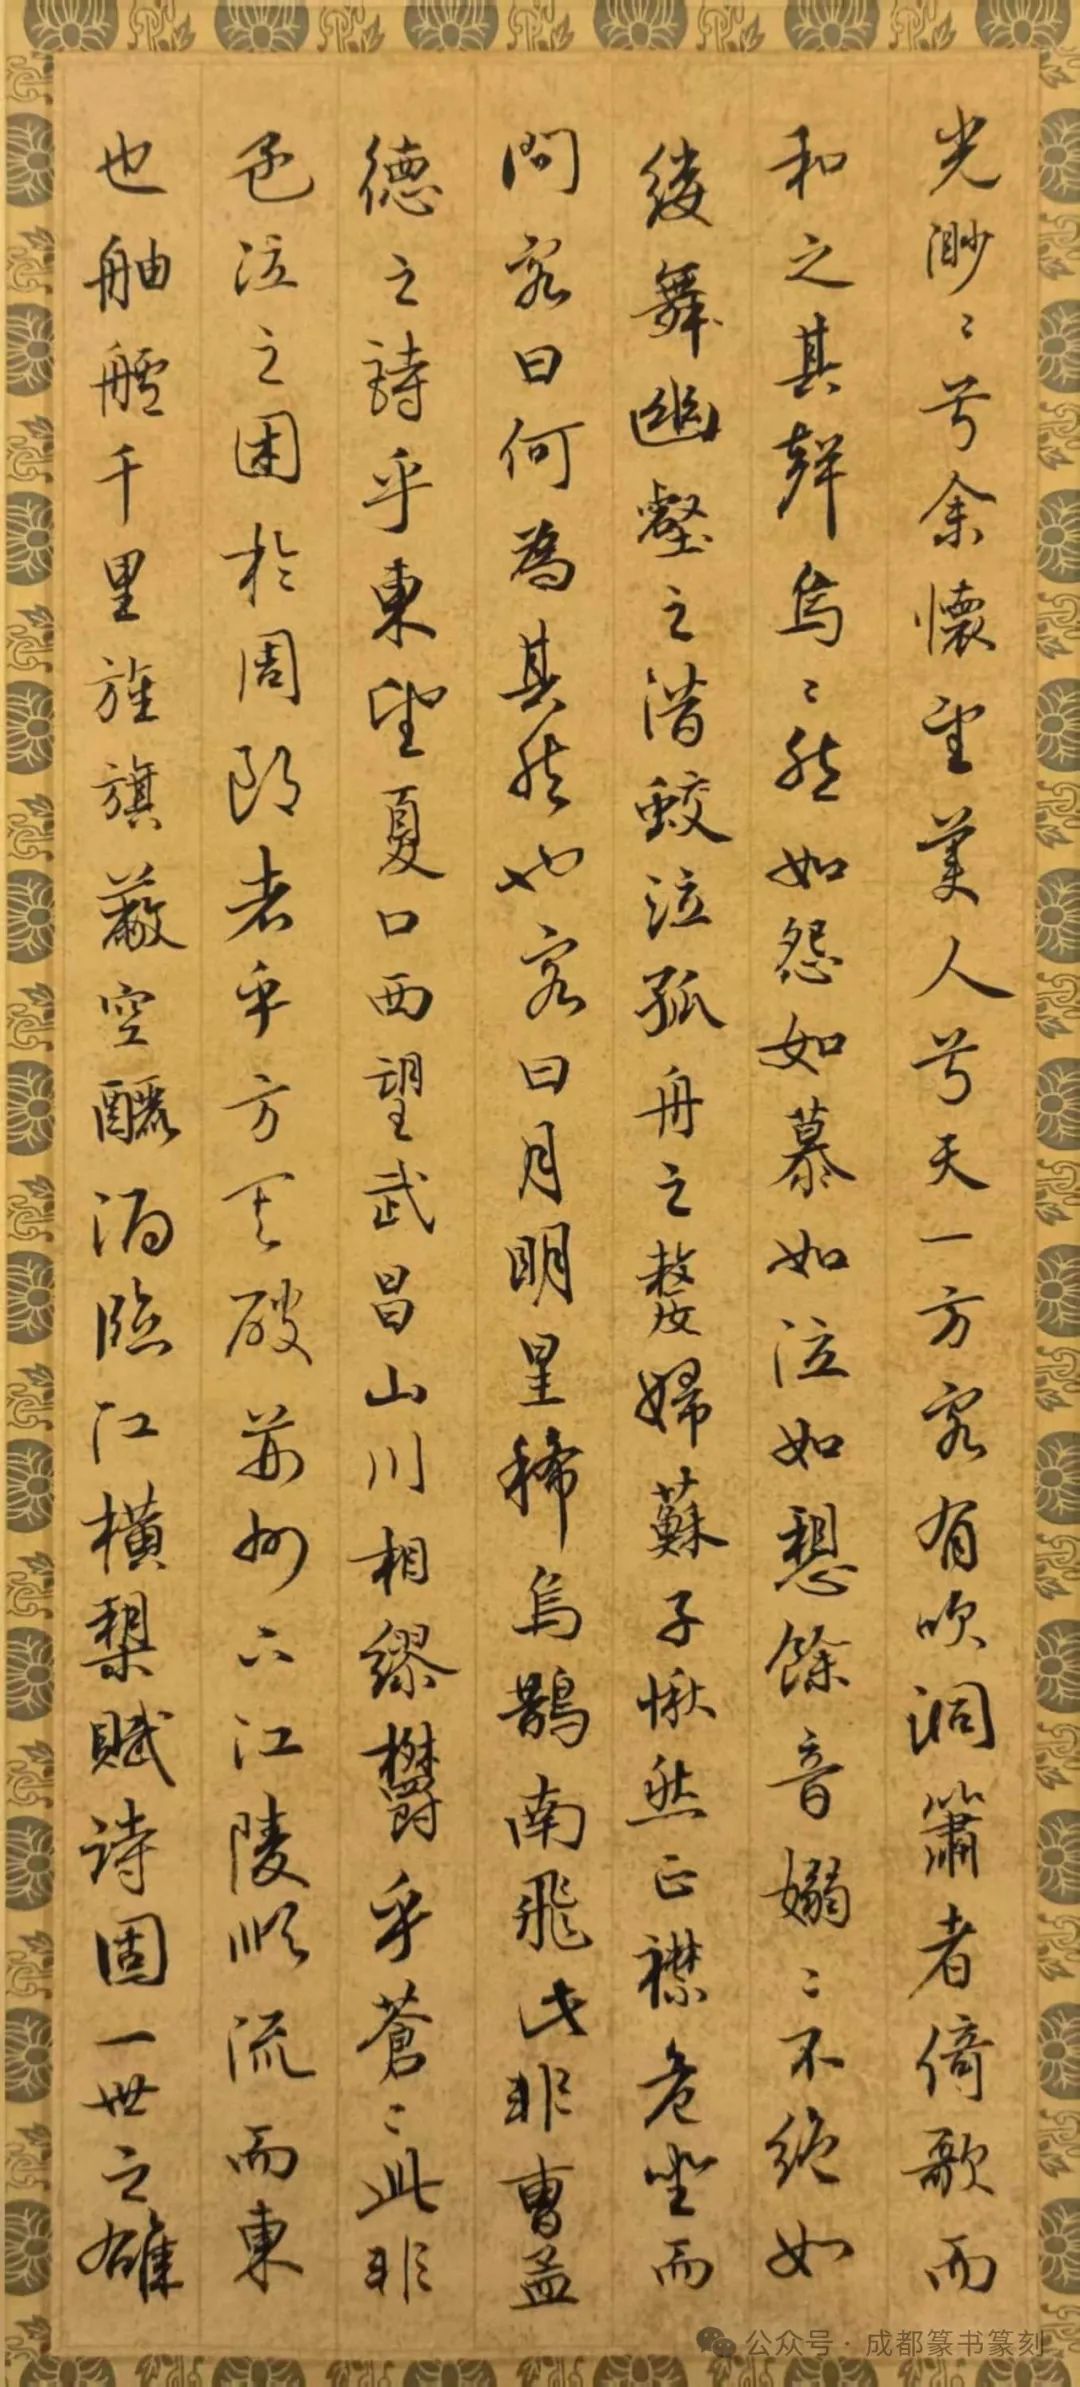 光渺〻兮余懷望美人兮天一方客有吹洞簫者倚歌而
和之其聲烏〻然如怨如慕如泣如愬餘音嫋〻不絕如
縷舞幽壑之潛蛟泣孤舟之嫠婦蘇子愀然正襟危坐而
問客曰何為其然也客曰月明星稀烏鵲南飛此非曹孟
德之詩乎東望夏口西望武昌山川相繆欝乎蒼〻此非
孟德之困於周郎者乎方其破荊州下江陵順流而東
也舳艫千里旌旗蔽空釃酒臨江橫槊賦詩固一世之雄
公众号·成都篆书篆刻